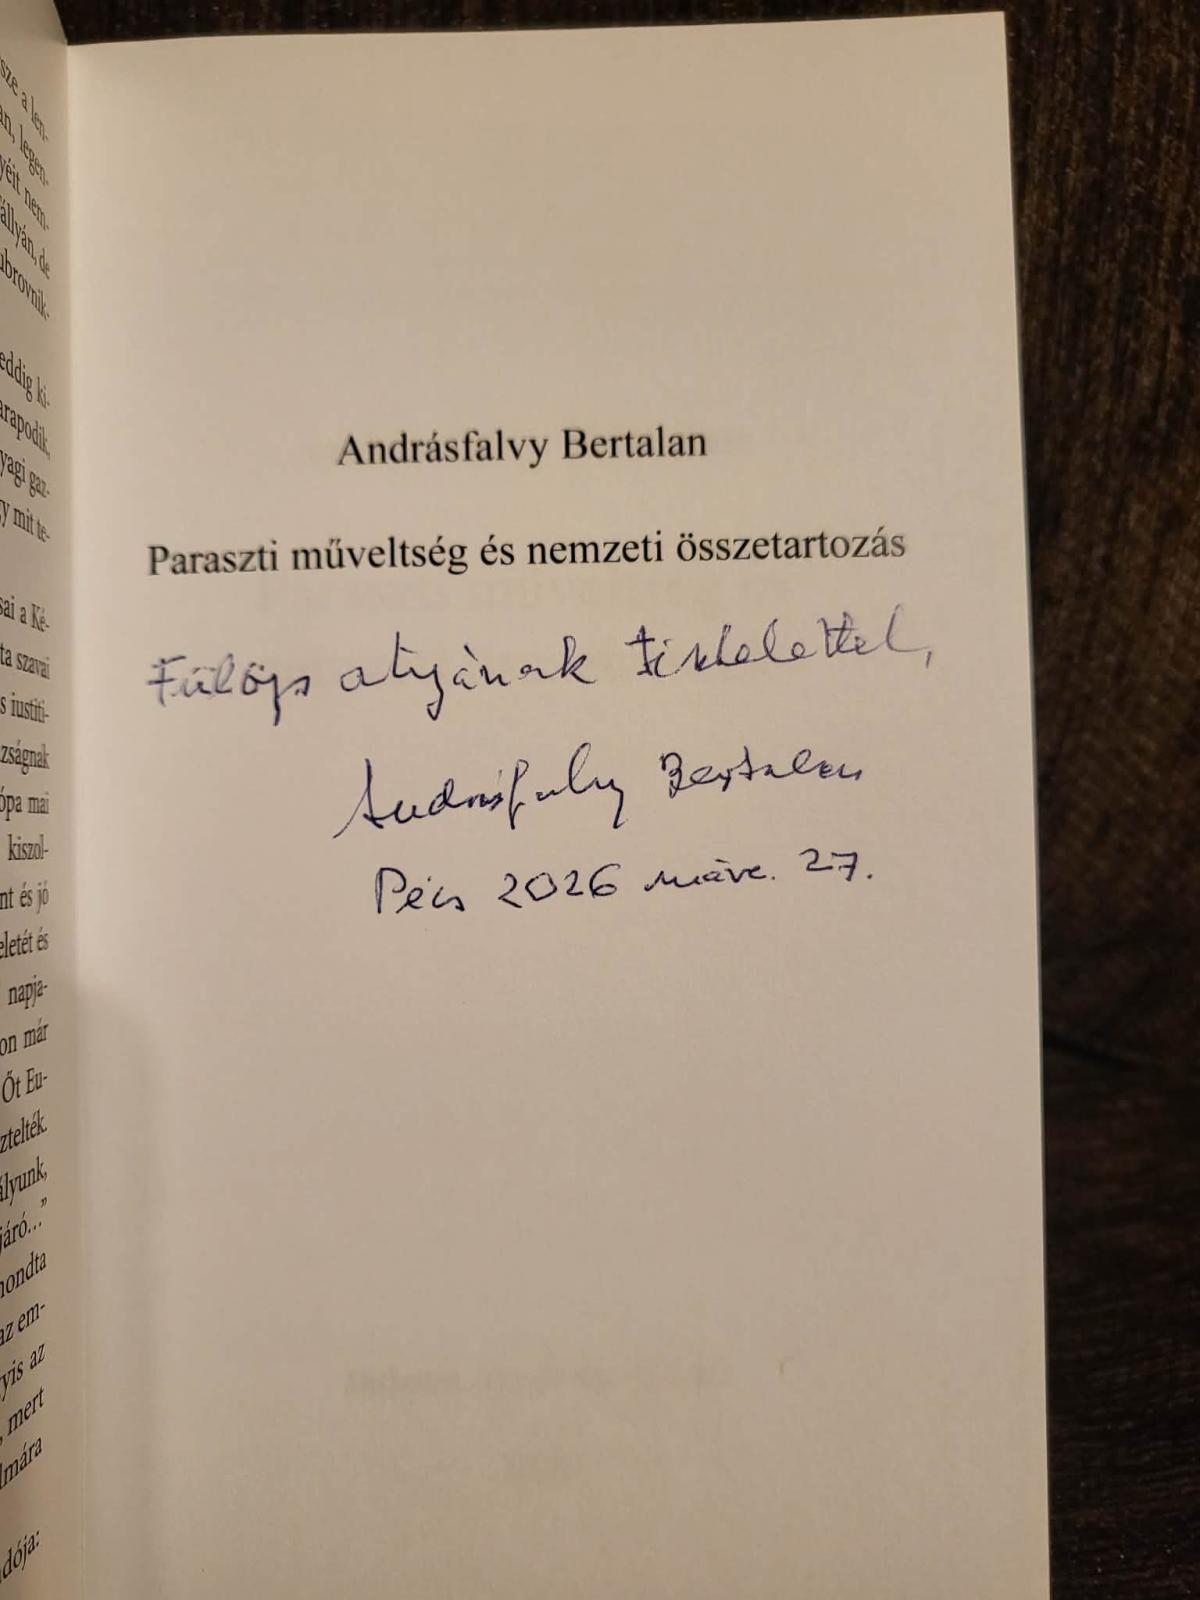 sze a len-
an, legen-
yéit nem-
állyán, de
ubrovnik-
eddig ki-
arapodik,
yagi gaz-
gy mit te-
sai a Ké-
ta szavai
s iustiti-
zságnak
ópa mai
kiszol-
nt és jó
eletét és
napja-
on már
Őt Eu-
ztelték.
ályunk,
járó..."
nondta
az em-
yis az
, mert
lmára
dója:
Andrásfalvy Bertalan
Paraszti műveltség és nemzeti összetartozás
Fülöp atyának tisztelettel,
Andrásfalvy Bertalan
Pécs 2026 márc. 27.